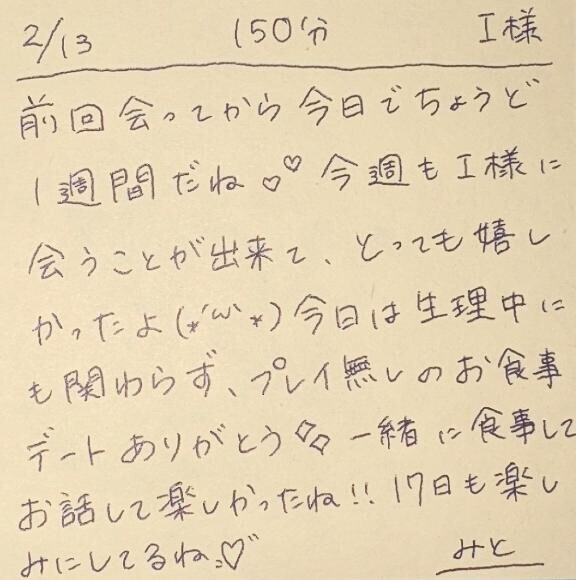 2/13 150分 I様
前回会ってから今日でちょうど
1週間だね♡♡今週もI様に
会うことが出来て、とっても嬉し
かったよ(*´ω`*)今日は生理中に
も関わらず、プレイ無しのお食事
デートありがとう◇◇一緒に食事して
お話して楽しかったね!!17日も楽し
みにしてるね♡
みと